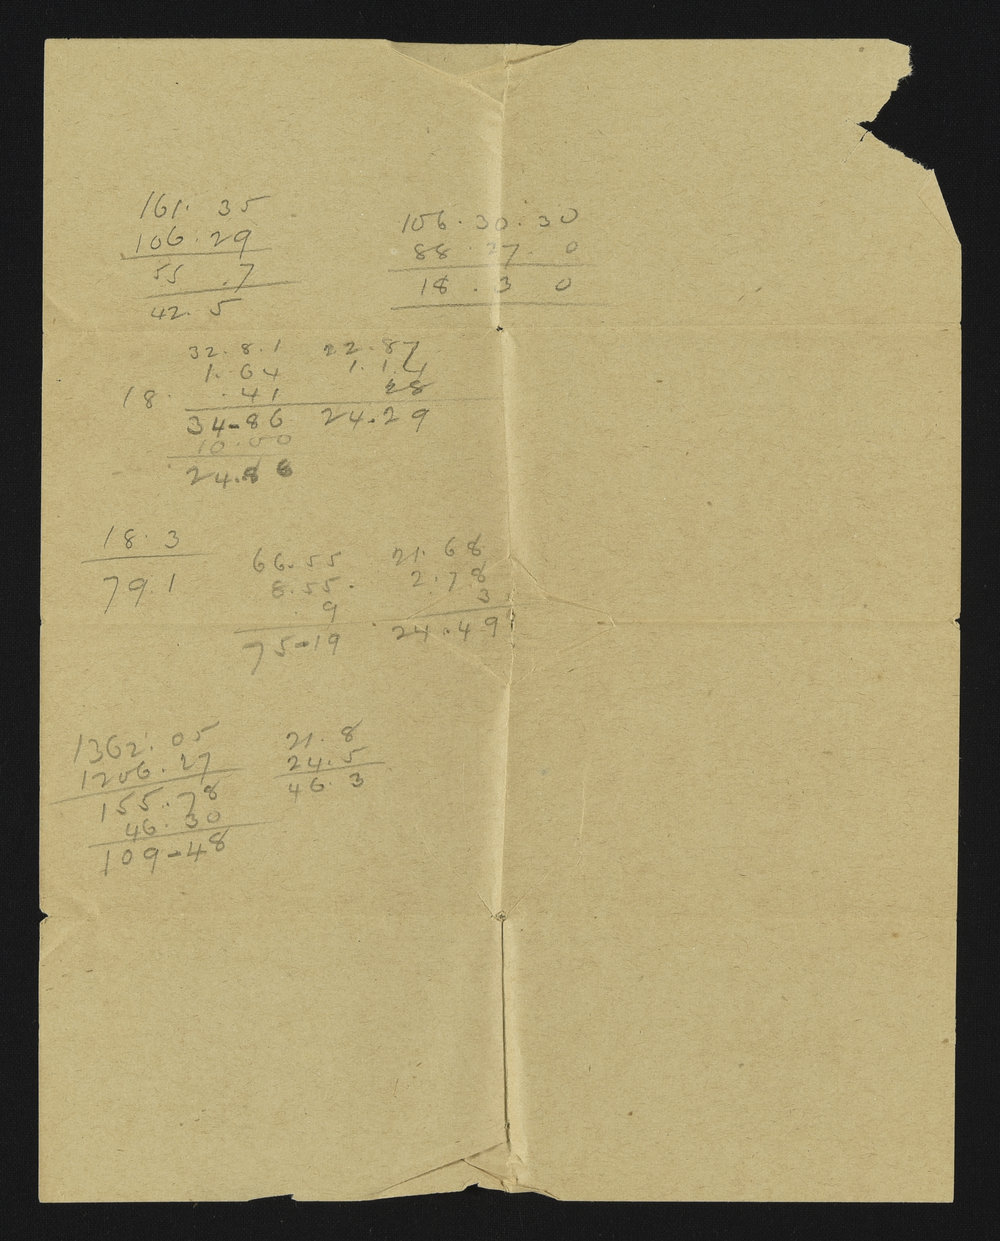 161. 35
106. 29
55 . 7
42. 5
106. 30. 30
88 . 27 . 0
18 . 3 0
32. 8. 1
1. 64
18. . 41
34-86
10.00
24.86
22. 87
1. 14
28
24.29
18. 3
79. 1
66.55
8.55.
. 9
75-19
21. 68
2. 78
3
24.49
1362. 05
1206. 27
155. 78
46. 30
109-48
21. 8
24. 5
46. 3